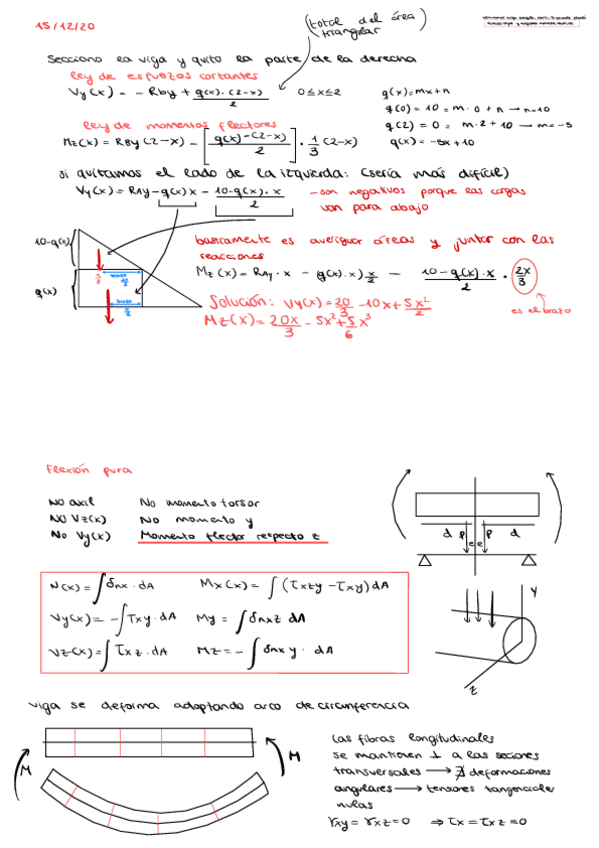 15/12/20
(total del área triangular)
Secciono la viga y quito la parte de la derecha
ley de esfuerzos cortantes
Vy(x) = - Rby + q(x)·(2-x)/2    0≤x≤2
q(x)=mx+n
q(0) = 10 = m·0 + n → n=10
q(2) = 0 = m·2 + 10 → m=-5
q(x) = -5x + 10
ley de momentos flectores
Mz(x) = RBy(2-x) - [q(x)-(2-x)/2] · 1/3 (2-x)
si quitamos el lado de la izquierda: (sería más difícil)
Vy(x) = RAy - q(x)x - 10-q(x)·x/2
- son negativos porque las cargas
van para abajo
10-q(x)
q(x)
brazo
x/2
basicamente es averiguar áreas y juntar con las
reacciones
Mz(x) = RAy·x - (q(x)·x) x/2 - 10-q(x)·x/2 · 2x/3
es el brazo
Solución: Vy(x) = 20/3 - 10x + 5x²/2
Mz(x) = 20x/3 - 5x² + 5/6 x³
Flexión pura
No axil    No momento torsor
No Vz(x)    No momento y
No Vy(x)    Momento flector respecto z
d P e e P d
N(x) = ∫σnx · dA    Mx(x) = ∫(τxzy - τxy) dA
Vy(x) = -∫τxy · dA    My = ∫σnxz dA
Vz(x) = ∫τxz · dA    Mz = -∫σnx y · dA
y
z
viga se deforma adoptando arco de circunferencia
M
M
las fibras longitudinales
se mantienen ⊥ a las seciones
transversales → ∄ deformaciones
angulares → tensores tangenciales
nulas
γxy = γxz = 0 ⇒ τx = τxz = 0